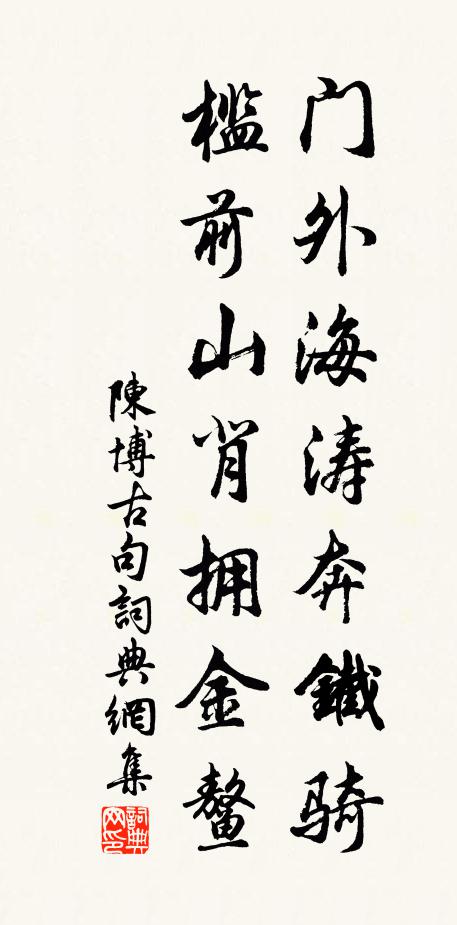 门外海涛奔鐵骑
槛前山背拥金鳌
陳博古句詞典網集
詞典
网印